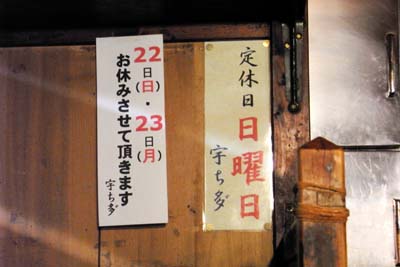 定休日 日曜日
宇ち多゛
22日(日)・23日(月)
お休みさせて頂きます
宇ち多゛